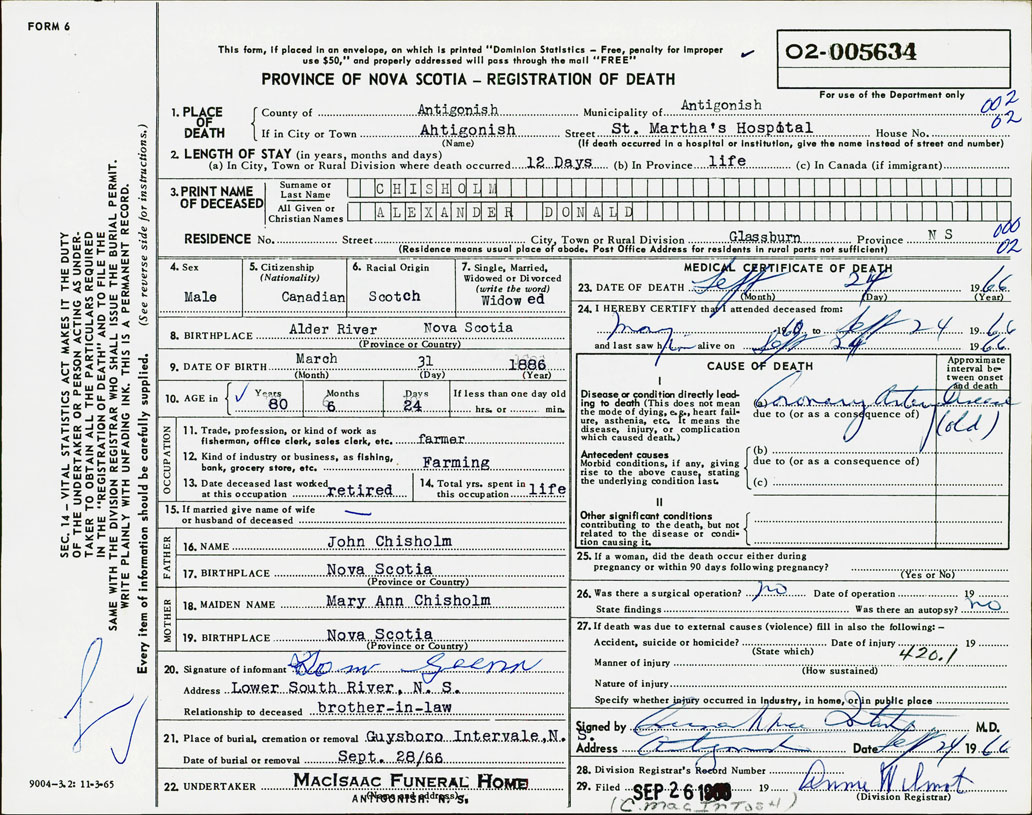 FORM 6
This form, if placed in an envelope, on which is printed "Dominion Statistics – Free, penalty for improper
use $50," and properly addressed will pass through the mail "FREE"
02-005634
PROVINCE OF NOVA SCOTIA – REGISTRATION OF DEATH
For use of the Department only
1. PLACE OF DEATH
County of Antigonish Municipality of Antigonish 002
If in City or Town Ahtigonish Street St. Martha's Hospital House No. 02
(Name) (If death occurred in a hospital or institution, give the name instead of street and number)
2. LENGTH OF STAY (in years, months and days)
(a) In City, Town or Rural Division where death occurred 12 Days (b) In Province life (c) In Canada (if immigrant)
3. PRINT NAME OF DECEASED
Surname or Last Name CHISHOLM
All Given or Christian Names ALEXANDER DONALD
RESIDENCE No. Street City, Town or Rural Division Glassburn Province N S 000
(Residence means usual place of abode. Post Office Address for residents in rural parts not sufficient) 02
4. Sex
Male
5. Citizenship
(Nationality)
Canadian
6. Racial Origin
Scotch
7. Single, Married,
Widowed or Divorced
(write the word)
Widow ed
8. BIRTHPLACE Alder River Nova Scotia
(Province or Country)
9. DATE OF BIRTH March 31 1886
(Month) (Day) (Year)
10. AGE in Years Months Days If less than one day old
80 6 24 hrs. or min.
OCCUPATION
11. Trade, profession, or kind of work as
fisherman, office clerk, sales clerk, etc. farmer
12. Kind of industry or business, as fishing,
bank, grocery store, etc. Farming
13. Date deceased last worked
at this occupation retired
14. Total yrs. spent in
this occupation life
15. If married give name of wife
or husband of deceased —
FATHER
16. NAME John Chisholm
17. BIRTHPLACE Nova Scotia
(Province or Country)
MOTHER
18. MAIDEN NAME Mary Ann Chisholm
19. BIRTHPLACE Nova Scotia
(Province or Country)
20. Signature of informant
Address Lower South River, N. S.
Relationship to deceased brother-in-law
21. Place of burial, cremation or removal Guysboro Intervale, N. S.
Date of burial or removal Sept. 28/66
22. UNDERTAKER MacIsaac Funeral Home
(Name and address)
ANTIGONISH, N. S.
MEDICAL CERTIFICATE OF DEATH
23. DATE OF DEATH Sept 24 1966
(Month) (Day) (Year)
24. I HEREBY CERTIFY that I attended deceased from:
May 1960 to Sept 24 1966
and last saw him alive on Sept 24 1966
CAUSE OF DEATH
Approximate
interval be-
tween onset
and death
I
Disease or condition directly lead-
ing to death (This does not mean
the mode of dying, e.g., heart fail-
ure, asthenia, etc. It means the
disease, injury, or complication
which caused death.)
(a) Coronary Artery Disease
due to (or as a consequence of)
(old)
Antecedent causes
Morbid conditions, if any, giving
rise to the above cause, stating
the underlying condition last.
(b)
due to (or as a consequence of)
(c)
II
Other significant conditions
contributing to the death, but not
related to the disease or condi-
tion causing it.
25. If a woman, did the death occur either during
pregnancy or within 90 days following pregnancy?
(Yes or No)
26. Was there a surgical operation? no Date of operation 19
State findings Was there an autopsy? no
27. If death was due to external causes (violence) fill in also the following:–
Accident, suicide or homicide? Date of injury 19
(State which) 420.1
Manner of injury
(How sustained)
Nature of injury
Specify whether injury occurred in industry, in home, or in public place
Signed by M.D.
Address Antigonish Date Sept 24 1966
28. Division Registrar's Record Number
29. Filed SEP 26 1966 19 Anne Wilmot
(Division Registrar)
(C. MacIntosh)
SEC. 14 – VITAL STATISTICS ACT MAKES IT THE DUTY
OF THE UNDERTAKER OR PERSON ACTING AS UNDER-
TAKER TO OBTAIN ALL THE PARTICULARS REQUIRED
IN THE "REGISTRATION OF DEATH" AND TO FILE THE
SAME WITH THE DIVISION REGISTRAR WHO SHALL ISSUE THE BURIAL PERMIT.
WRITE PLAINLY WITH UNFADING INK. THIS IS A PERMANENT RECORD.
Every item of information should be carefully supplied. (See reverse side for instructions.)
9004-3.2: 11-3-65